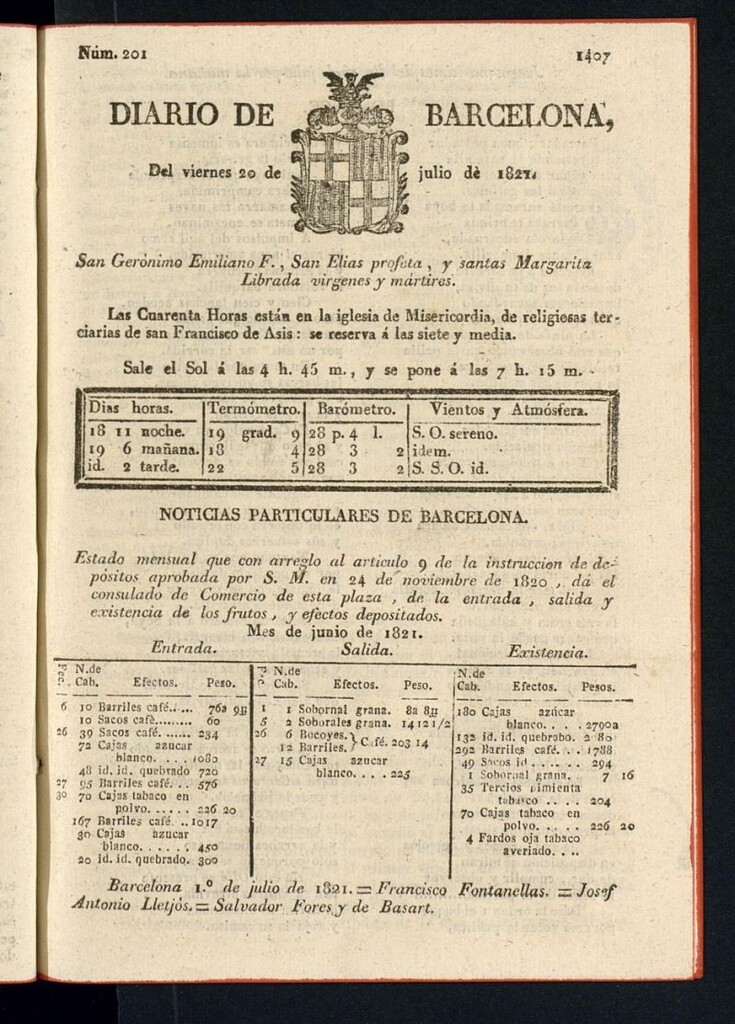 Núm. 201 1407
DIARIO DE BARCELONA,
Del viernes 20 de julio de 1821.
San Gerónimo Emiliano F., San Elias profeta, y santas Margarita
Librada virgenes y mártires.
Las Cuarenta Horas están en la iglesia de Misericordia, de religiosas ter-
ciarias de san Francisco de Asis: se reserva á las siete y media.
Sale el Sol á las 4 h. 45 m., y se pone á las 7 h. 15 m.
Dias horas. Termómetro. Barómetro. Vientos y Atmósfera.
18 11 noche. 19 grad. 9 28 p. 4 l. S. O. sereno.
19 6 mañana. 18 4 28 3 2 idem.
id. 2 tarde. 22 5 28 3 2 S. S. O. id.
NOTICIAS PARTICULARES DE BARCELONA.
Estado mensual que con arreglo al articulo 9 de la instruccion de de-
pósitos aprobada por S. M. en 24 de noviembre de 1820, dá el
consulado de Comercio de esta plaza, de la entrada, salida y
existencia de los frutos, y efectos depositados.
Mes de junio de 1821.
Entrada.
N.de
Cab. Efectos. Peso.
6 10 Barriles café..... 76a 9
10 Sacos café......... 60
26 39 Sacos café...... 234
72 Cajas azucar
blanco. . . . .1080
48 id. id. quebrado 720
27 95 Barriles café. . . 576
30 70 Cajas tabaco en
polvo. . . . . . 226 20
167 Barriles café. ..1017
30 Cajas azucar
blanco. . . . . . 450
20 id. id. quebrado. 300
Salida.
N.de
Cab. Efectos. Peso.
1 1 Sobornal grana. 8a 8
5 2 Soborales grana. 14 12 1/2
26 6 Bocoyes.
12 Barriles. } Café. 203 14
27 15 Cajas azucar
blanco. . . . 225
Existencia.
N.de
Cab. Efectos. Pesos.
180 Cajas azúcar
blanco. . . .2700a
132 id. id. quebrabo. 2 80
292 Barriles café. . . 1788
49 Sacos id . . . . . 294
1 Sobornal grana. 7 16
35 Tercios pimienta
tabasco . . . . 204
70 Cajas tabaco en
polvo. . . . . 226 20
4 Fardos oja tabaco
averiado. . . .
Barcelona 1.º de julio de 1821. = Francisco Fontanellas. = Josef
Antonio Lletjós. = Salvador Fores y de Basart.